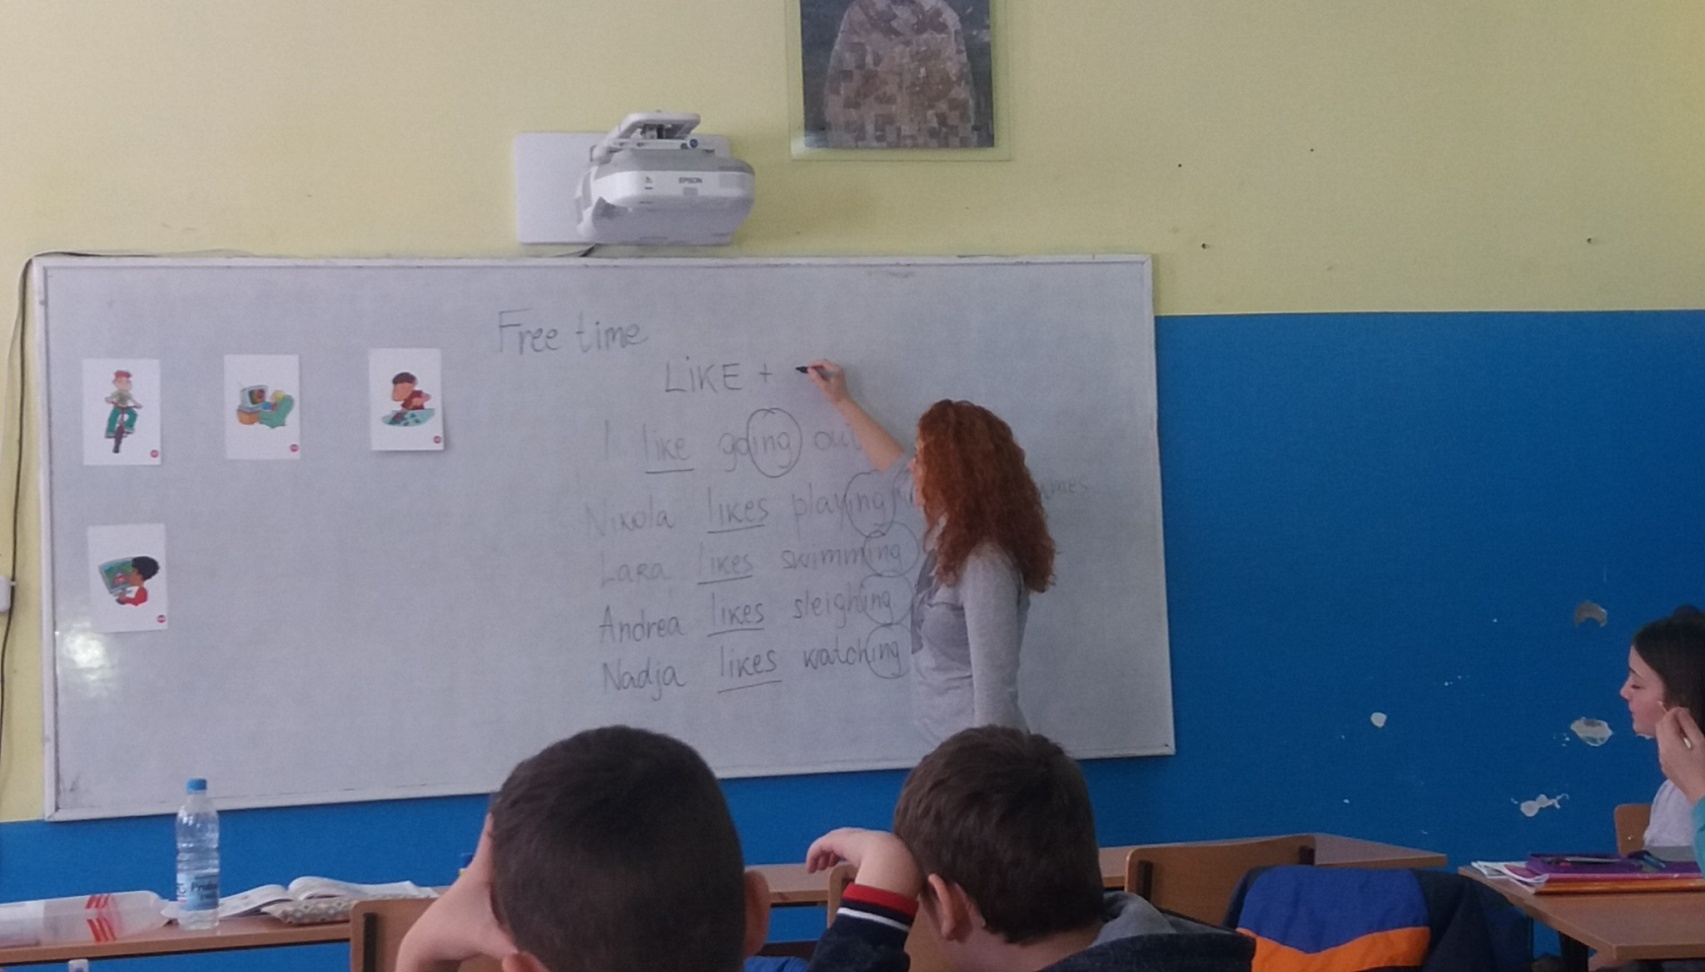 EPSON
Free time
LIKE +
I like going out
Nikola likes playing
Lara likes swimming
Andrea likes sleighing
Nadja likes watching